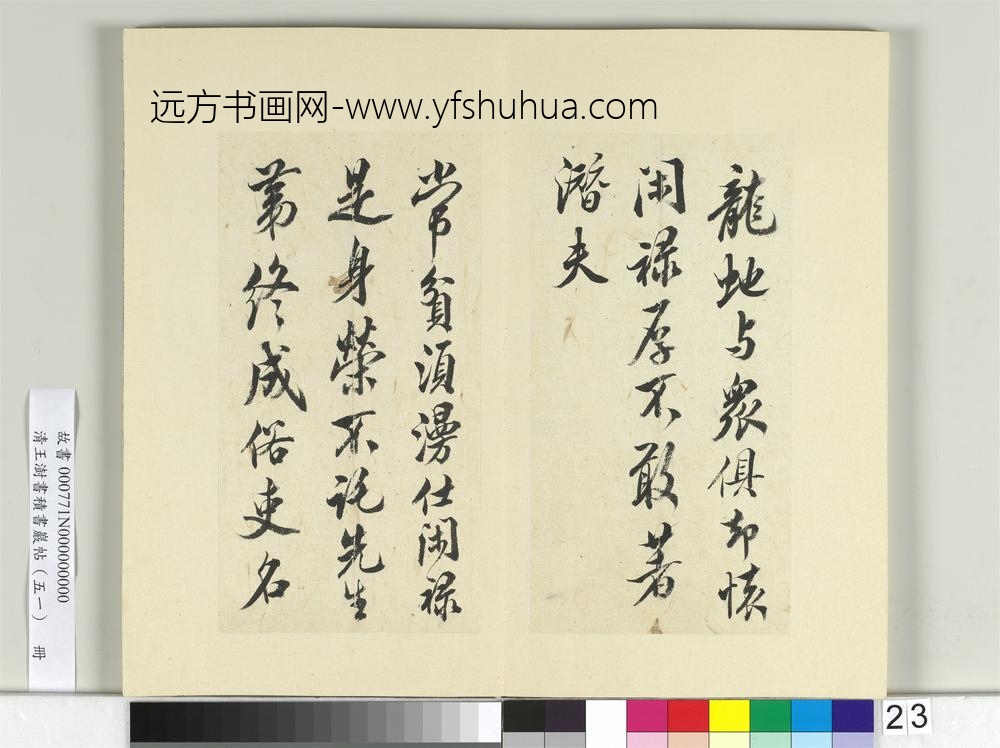 远方书画网-www.yfshuhua.com
龍虵与衆俱却懐
閑禄厚不敢著
潛夫
常貧須漫仕閑禄
是身榮不託先生
第終成俗吏名
故書 000771N000000000
清王澍書積書巖帖(五一) 冊
23